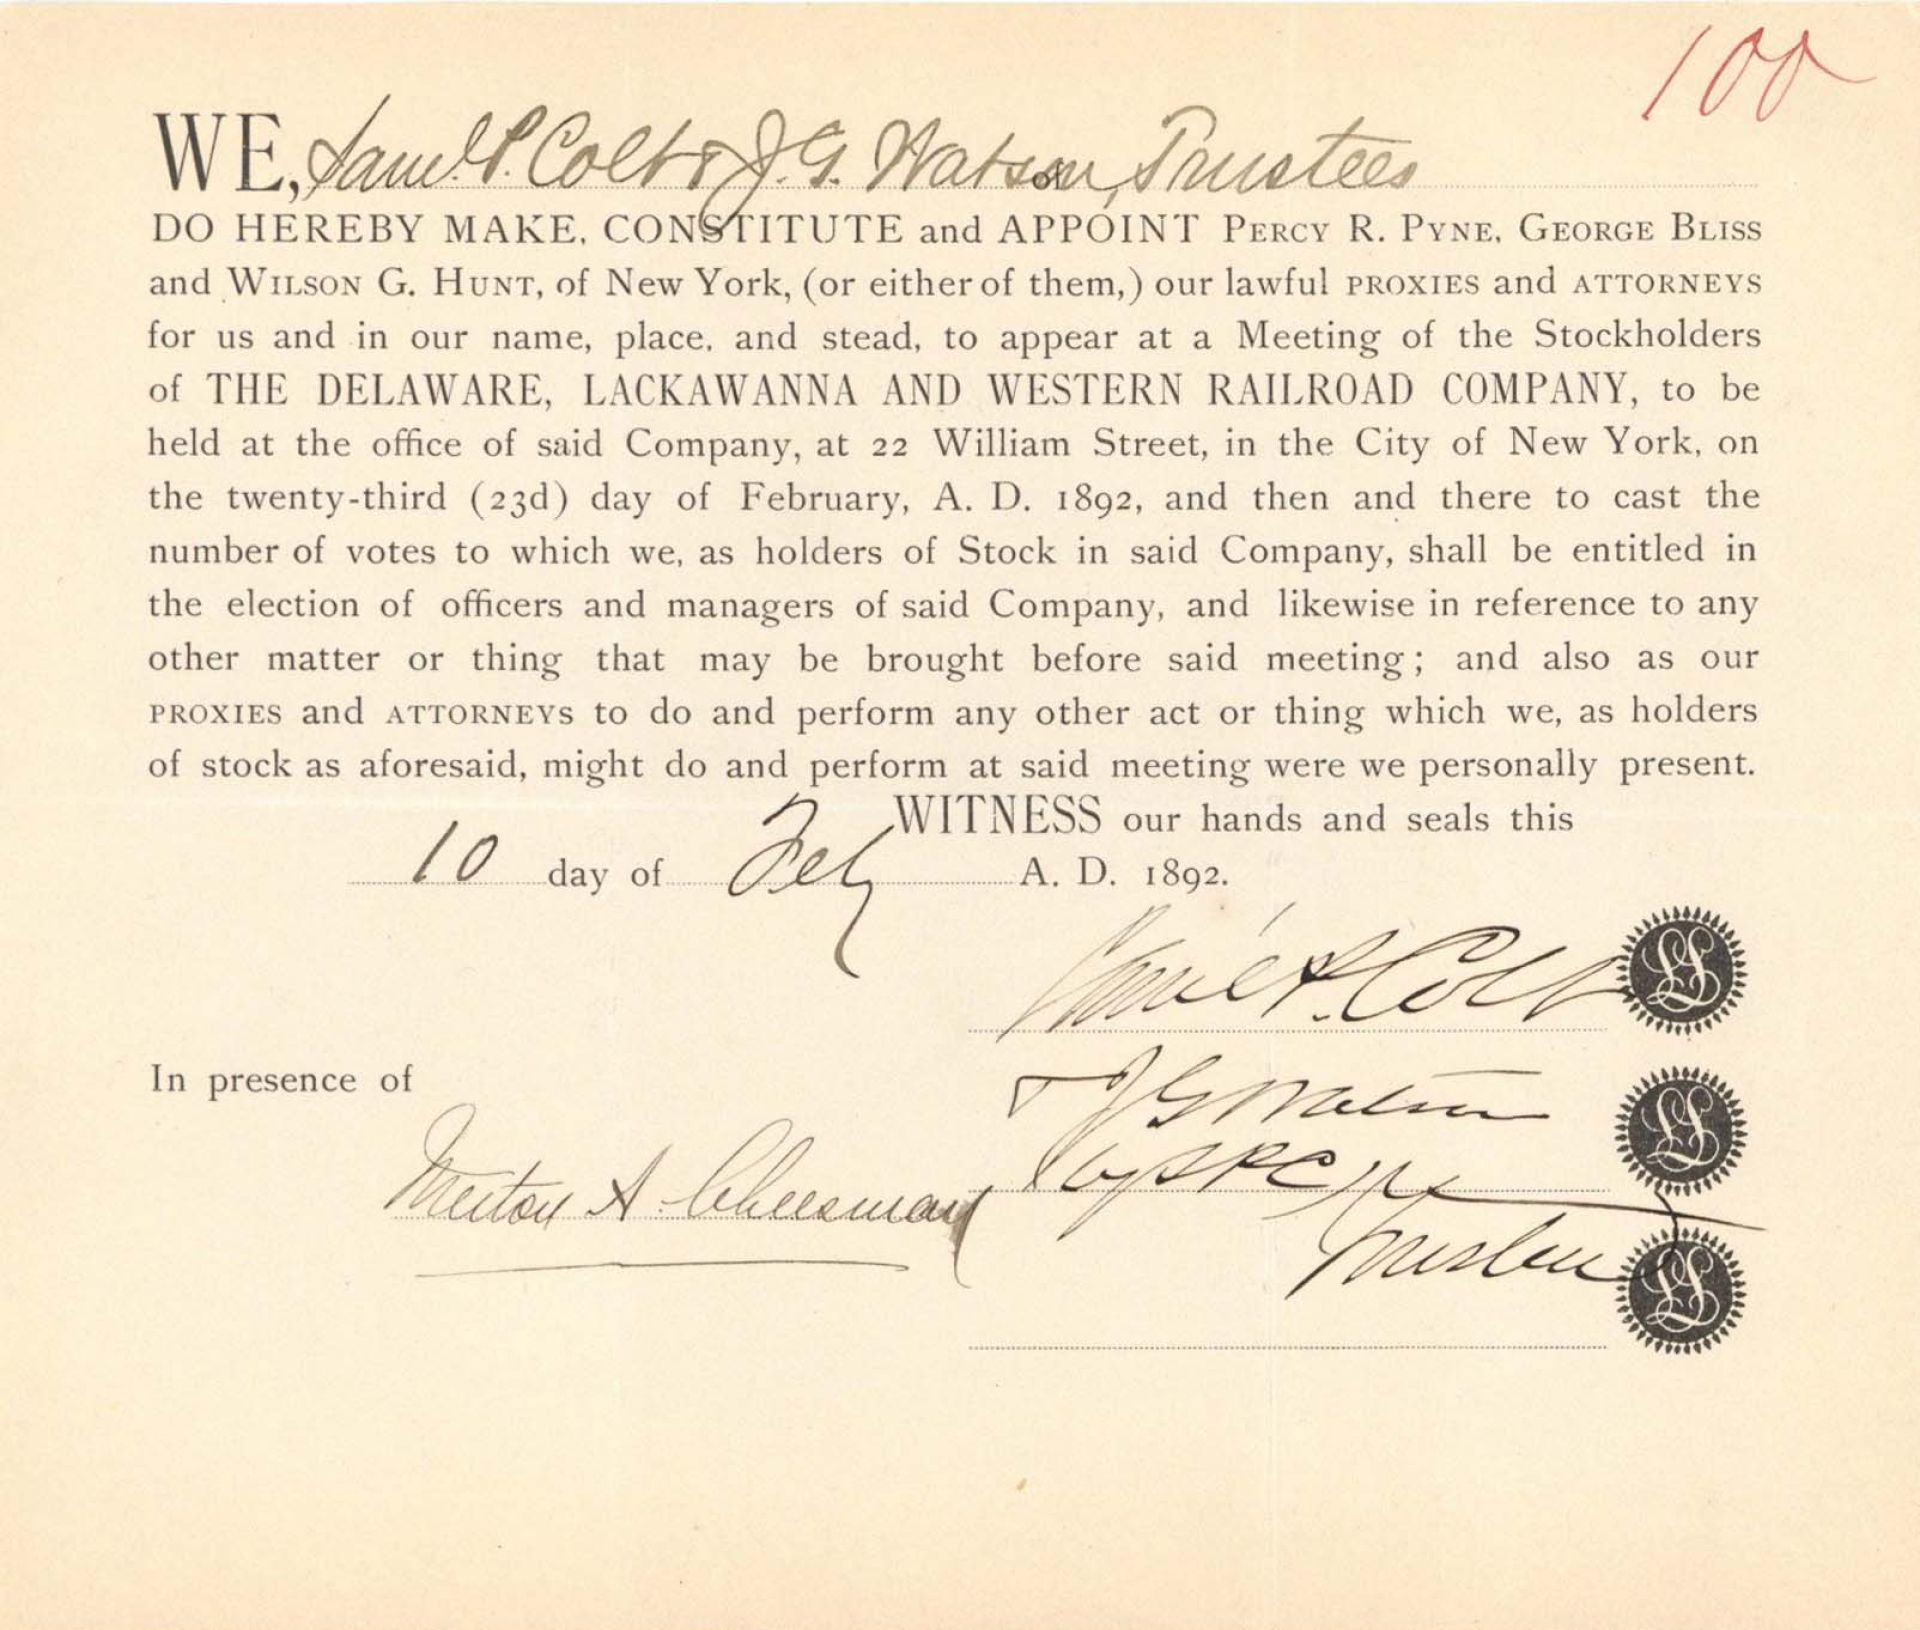 100
WE, Sam'l P. Colt & J. G. Watson, Trustees
of
DO HEREBY MAKE, CONSTITUTE and APPOINT PERCY R. PYNE, GEORGE BLISS
and WILSON G. HUNT, of New York, (or either of them,) our lawful PROXIES and ATTORNEYS
for us and in our name, place, and stead, to appear at a Meeting of the Stockholders
of THE DELAWARE, LACKAWANNA AND WESTERN RAILROAD COMPANY, to be
held at the office of said Company, at 22 William Street, in the City of New York, on
the twenty-third (23d) day of February, A. D. 1892, and then and there to cast the
number of votes to which we, as holders of Stock in said Company, shall be entitled in
the election of officers and managers of said Company, and likewise in reference to any
other matter or thing that may be brought before said meeting; and also as our
PROXIES and ATTORNEYS to do and perform any other act or thing which we, as holders
of stock as aforesaid, might do and perform at said meeting were we personally present.
WITNESS our hands and seals this
10 day of Feby A. D. 1892.
Sam'l P. Colt LS
J G Watson LS
In presence of
by SPC
A. Cheesman
Trustees LS